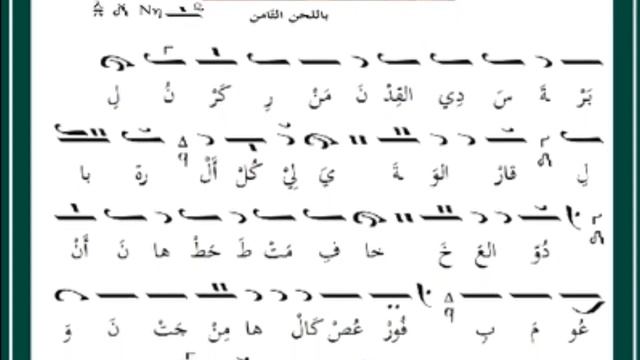 Νη باللحن الثامن
لِ نُ كَرْ رِ مَنْ نَ القِدْ دِي سَ ةَ بَرْ
با رة أَلْ كُلْ لِيْ يَ ةَ الوَ قارْ لِ
أَنْ نَ ها حَطْ طَ مَتْ فِ خا خَ العَ دُوّ
وَ نَ جَتْ مِنْ ها كَالْ عُصْ فُورْ بِ مَ عُو